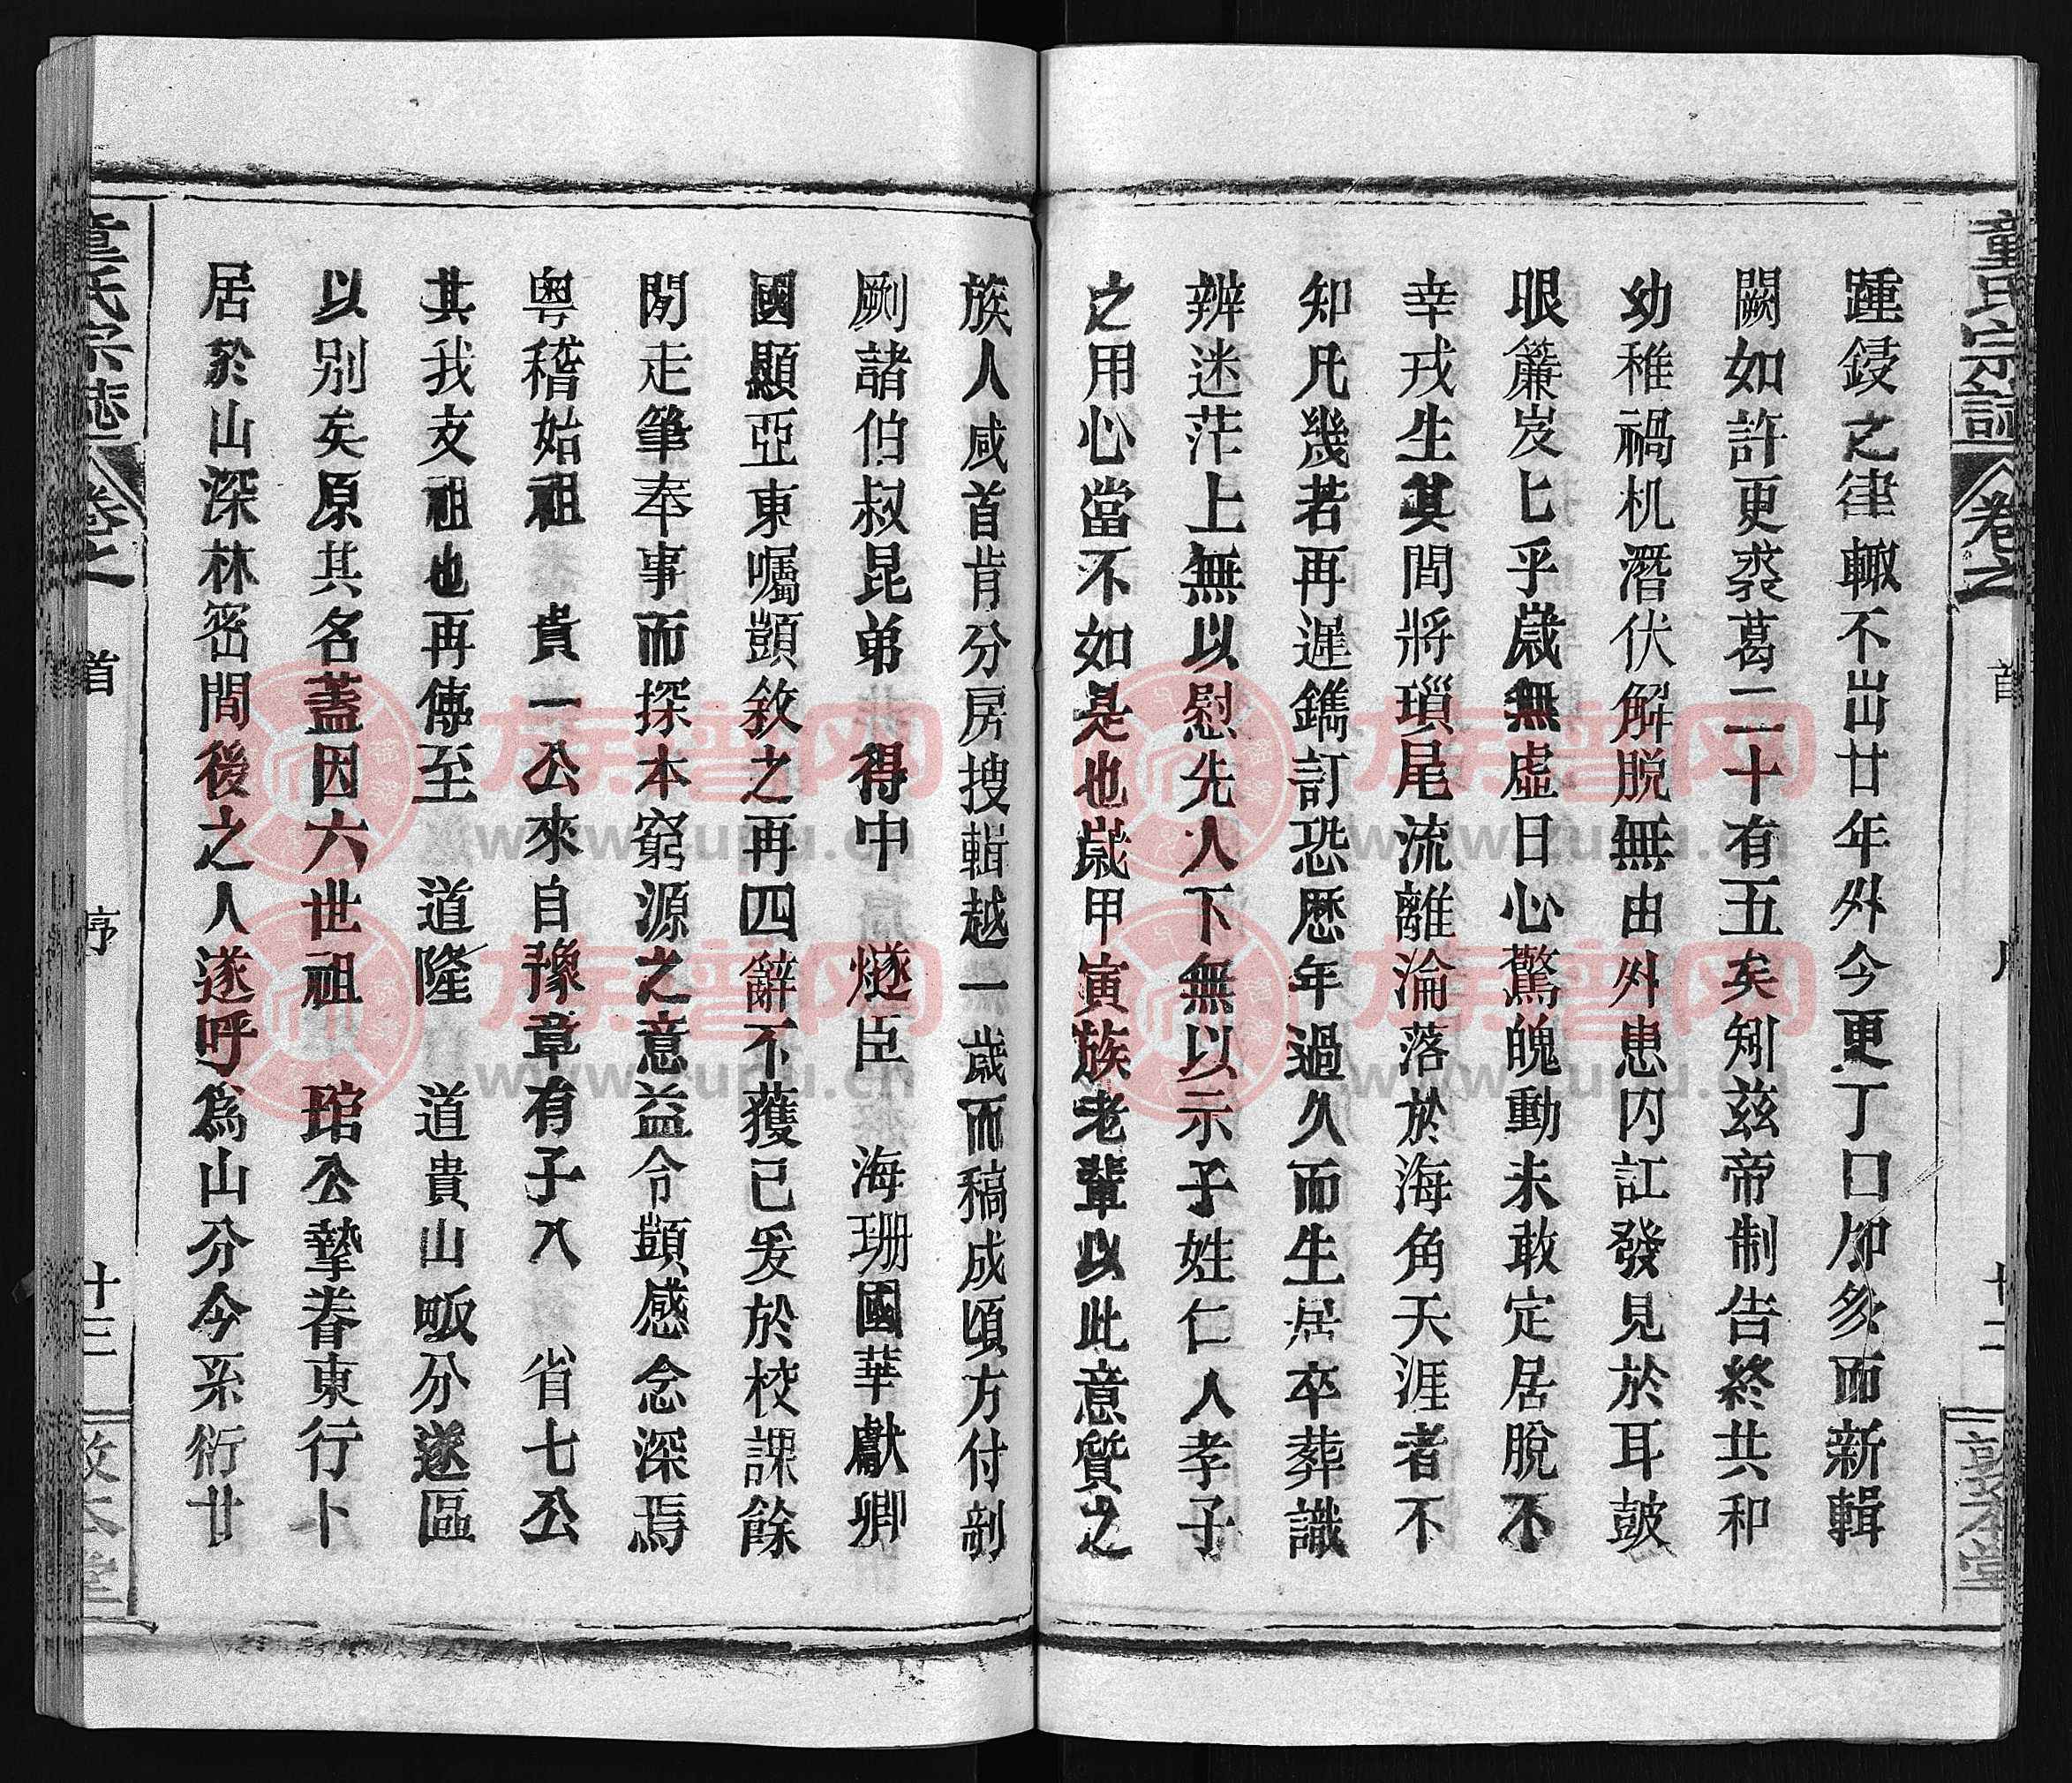 童氏宗誌
卷之
首
廿二
敦本堂
踵鋟之律輙不出廿年外今更丁口加多而新輯
闕如許更裘葛二十有五矣矧茲帝制告終共和
幼稚禍机潛伏解脫無由外患內訌發見於耳鼓
眼簾岌匕乎歲無虛日心驚魄動未敢定居脫不
幸戎生其間將瑣尾流離淪落於海角天涯者不
知凡幾若再遲鐫訂恐歷年過久而生居卒葬識
辨迷茫上無以慰先人下無以示子姓仁人孝子
之用心當不如是也歲甲寅族老輩以此意質之
族人咸首肯分房搜輯越一歲而稿成頃方付剞
劂諸伯叔昆弟 得中 燧臣 海珊國華獻卿
國顯亞東囑顗敘之再四辭不獲已爰於校課餘
閒走筆奉事而探本窮源之意益令顗感念深焉
粵稽始祖 貴一公來自豫章有子八 省七公
其我支祖也再傳至 道隆 道貴山畈分遂區
以別矣原其名蓋因六世祖 琯公摯眷東行卜
居於山深林密間後之人遂呼為山分今系衍廿
童氏宗誌
卷之
首
序
廿三
敦本堂